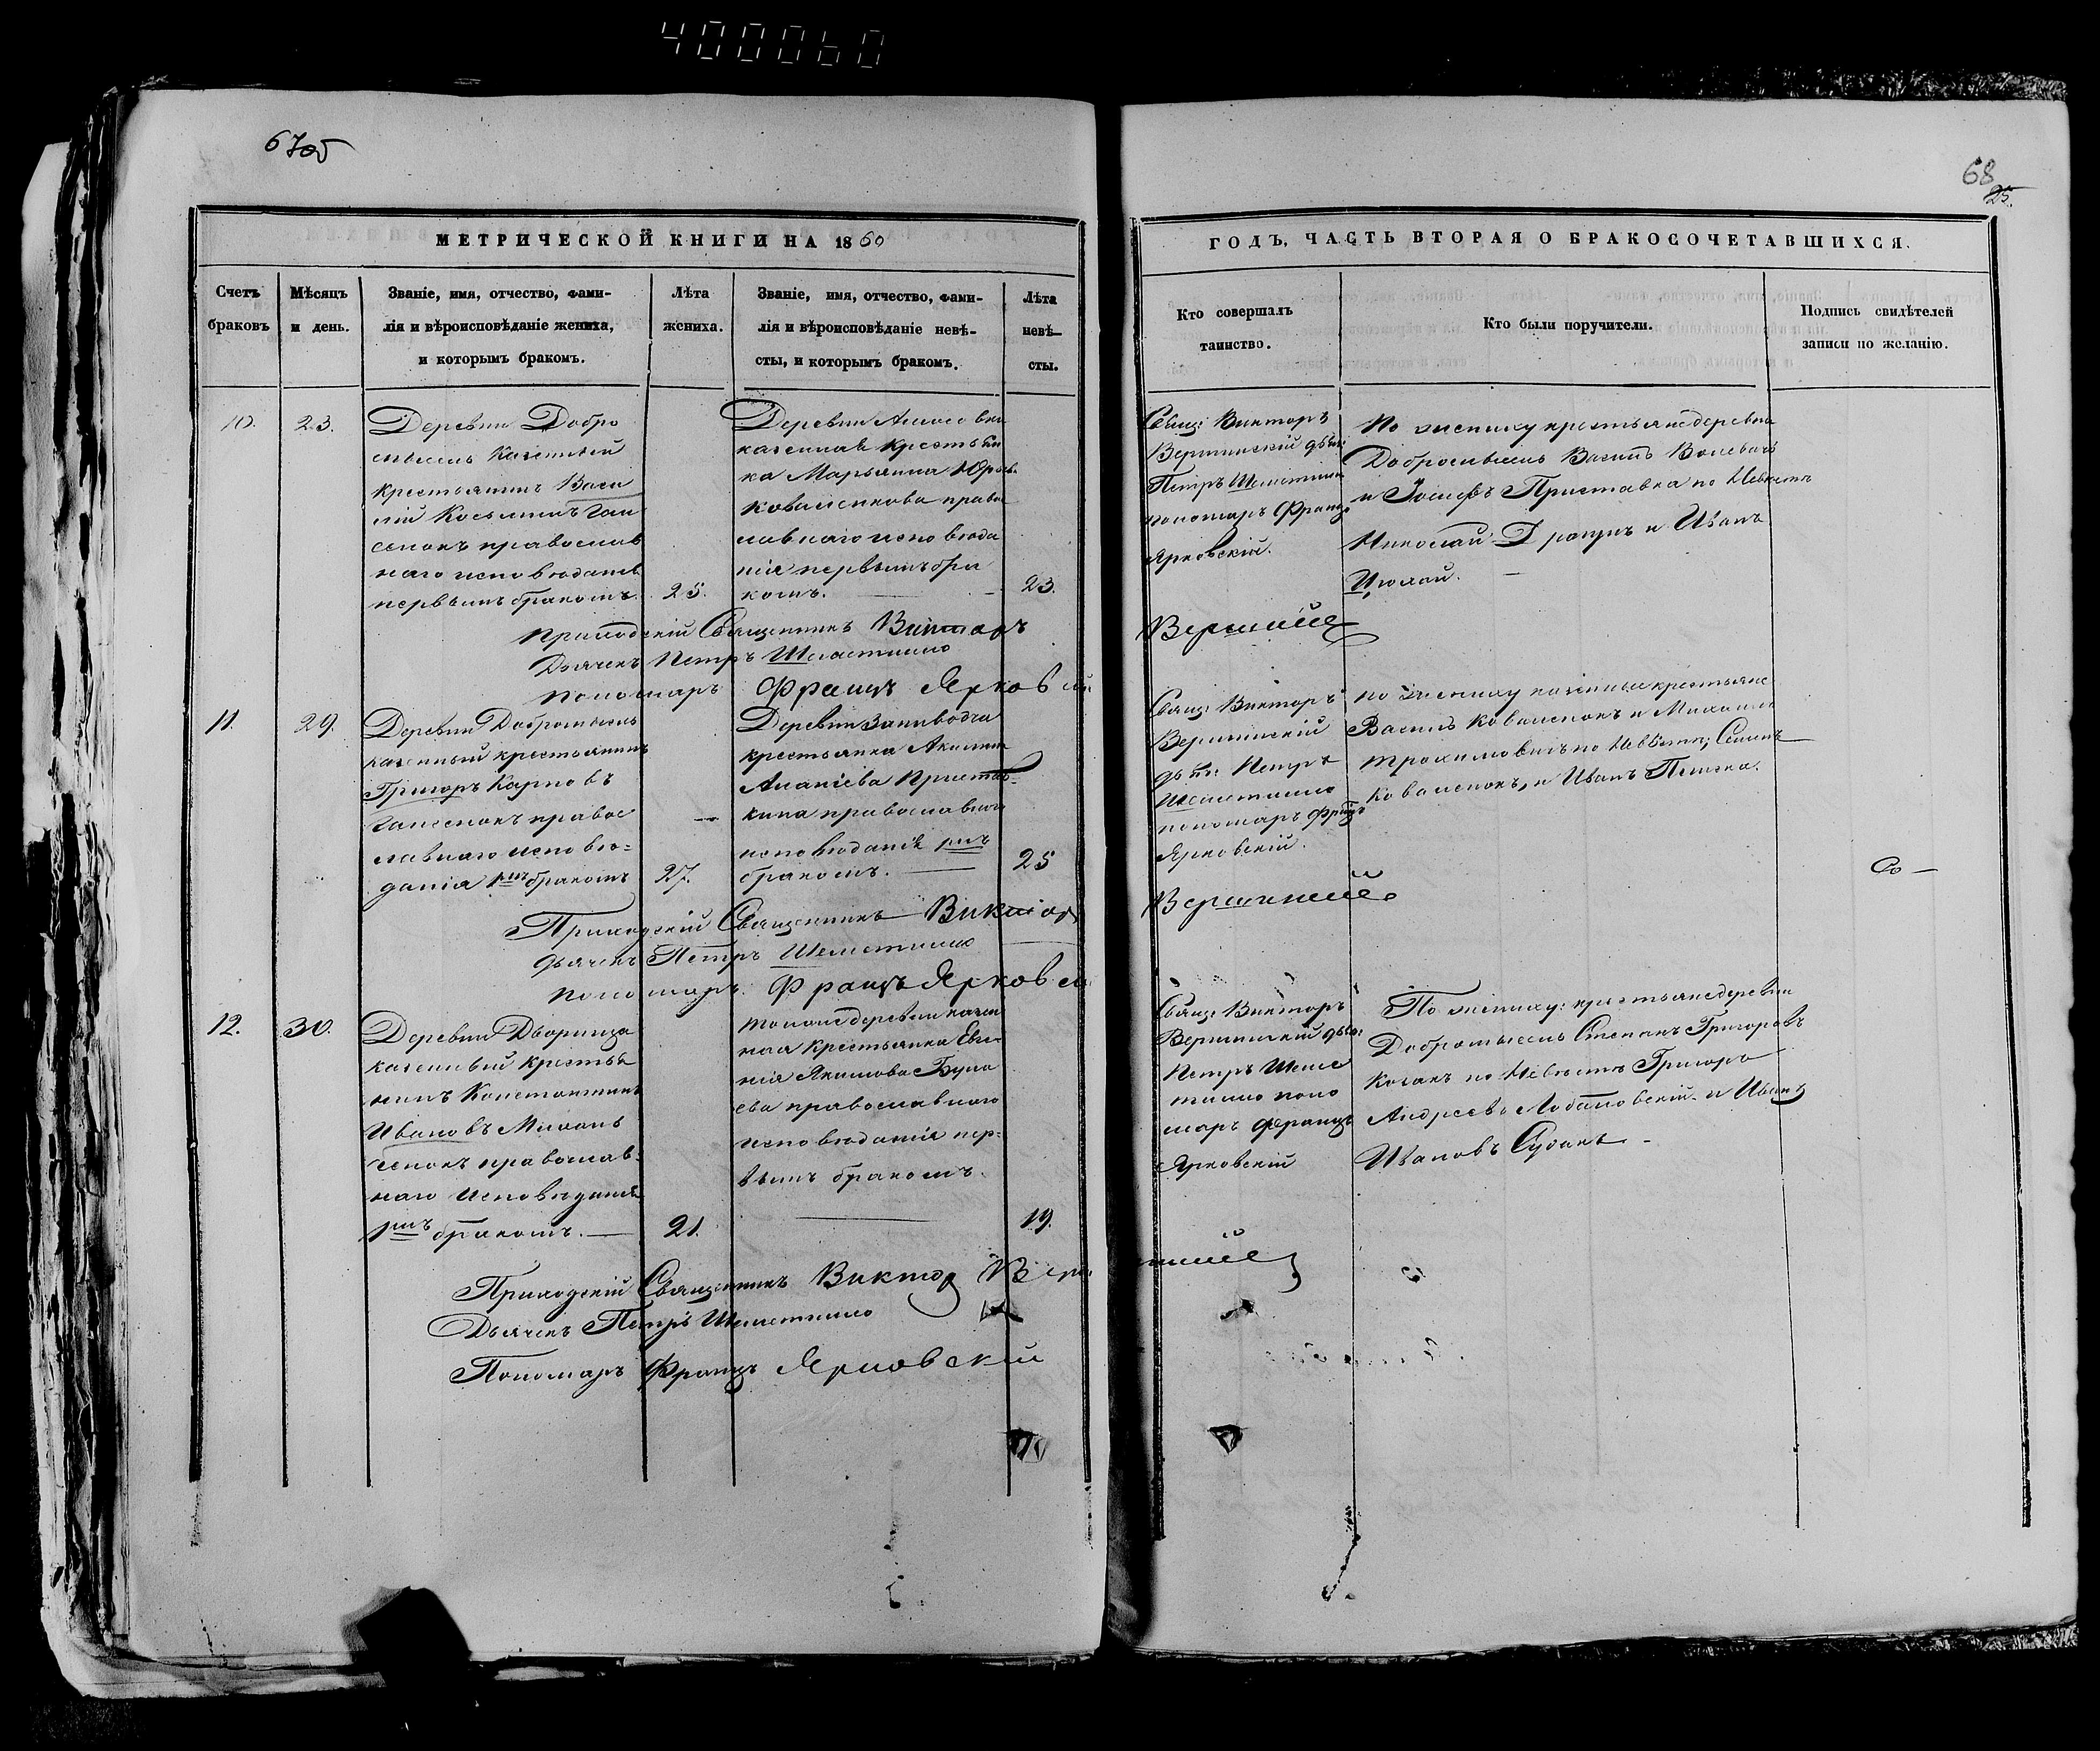 400060
6705
68
25.
МЕТРИЧЕСКОЙ КНИГИ НА 1860
ГОДЪ, ЧАСТЬ ВТОРАЯ О БРАКОСОЧЕТАВШИХСЯ.
Счетъ
браковъ
Мѣсяцъ
и день.
Званіе, имя, отчество, фами-
лія и вѣроисповѣданіе жениха,
и которымъ бракомъ.
Лѣта
жениха.
Званіе, имя, отчество, фами-
лія и вѣроисповѣданіе невѣ-
сты, и которымъ бракомъ.
Лѣта
невѣ-
сты.
Кто совершалъ
таинство.
Кто были поручители.
Подпись свидѣтелей
записи по желанію.
10.
23.
Деревни Добро
мысль Казенный
крестьянинъ Васи
лій Косьминъ
православ
наго исповѣданія
первымъ бракомъ.
25.
Деревни
казенная крестьян
ка Марьянна Юрьева
Коваленкова право
славнаго исповѣда
нія первымъ бра
комъ.
23.
Свящ: Викторъ
Вершинскій дьяч:
Петръ Шеметилло
пономарь Францъ
Ярковскій.
По жениху крестьяне деревни
Добромысль Василь
и Іосифъ Приставка по Невѣстѣ
Николай и Иванъ
Приходскій Священникъ Викторъ
Дьячекъ Петръ Шеметилло
пономарь Францъ Ярковскій
11.
29.
Деревни Добромысль
казенный крестьянинъ
Григоръ Карповъ
правос
лавнаго исповѣ-
данія 1мъ бракомъ
27.
Деревни
крестьянка Акилина
Ананіева Пристав-
кина православнаго
исповѣданія 1мъ
бракомъ.
25
Свящ: Викторъ
Вершинскій
дьяч: Петръ
Шеметилло
пономарь Францъ
Ярковскій.
По жениху казенные крестьяне
Василь Коваленокъ и Михаилъ
по Невѣстѣ; Семенъ
Коваленокъ, и Иванъ
Приходскій Священникъ Викторъ
дьячекъ Петръ Шеметилло
пономарь Францъ Ярковскій
12.
30.
Деревни Дворища
казенный крестья
нинъ Константинъ
Ивановъ
православ-
наго исповѣданія
1мъ бракомъ.
21.
тойже деревни казен
ная крестьянка Евге-
нія Якимова
православнаго
исповѣданія пер-
вымъ бракомъ.
19.
Свящ: Викторъ
Вершинскій дьяч:
Петръ Шеме
тилло поно
марь Францъ
Ярковскій
По жениху: крестьяне деревни
Добромысль Степанъ Григоровъ
Козакъ по Невѣстѣ Григоръ
Андреевъ и Иванъ
Ивановъ
Приходскій Священникъ Викторъ Вершинскій
Дьячекъ Петръ Шеметилло
Пономарь Францъ Ярковскій